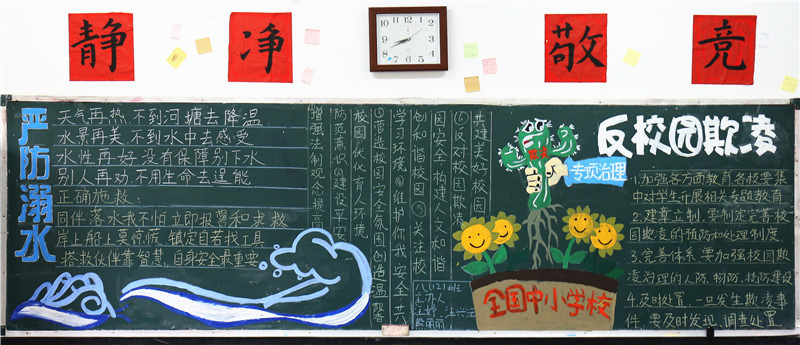 静
净
敬
竞
严防溺水
天气再热,不到河塘去降温
水景再美,不到水中去感受
水性再好没有保障别下水
别人再劝,不用生命去逞能
正确施救:
同伴落水我不怕立即报警和求救
岸上船上莫惊慌 镇定自若找工具
搭救伙伴靠智慧,自身安全最重要
增强法制观念提高
防范意识②建设平安
校园
环境
③营造校园安全氛围创造温馨
学习环境④维护你我安全共
创和谐校园⑤关注校
园安全 构建人文和谐
⑥反对校园欺凌
共建美好校园
反校园欺凌
专项治理
全国中小学校
1.加强各方面教育,各校要集
中对学生开展相关专题教育
2.建章立制,要制定完善校
园欺凌的预防和处理制度
3.完善体系,要加强校园欺
凌治理的人防、物防、技防建设
4.及时处置,一旦发生欺凌事
件,要及时发现、调查处置